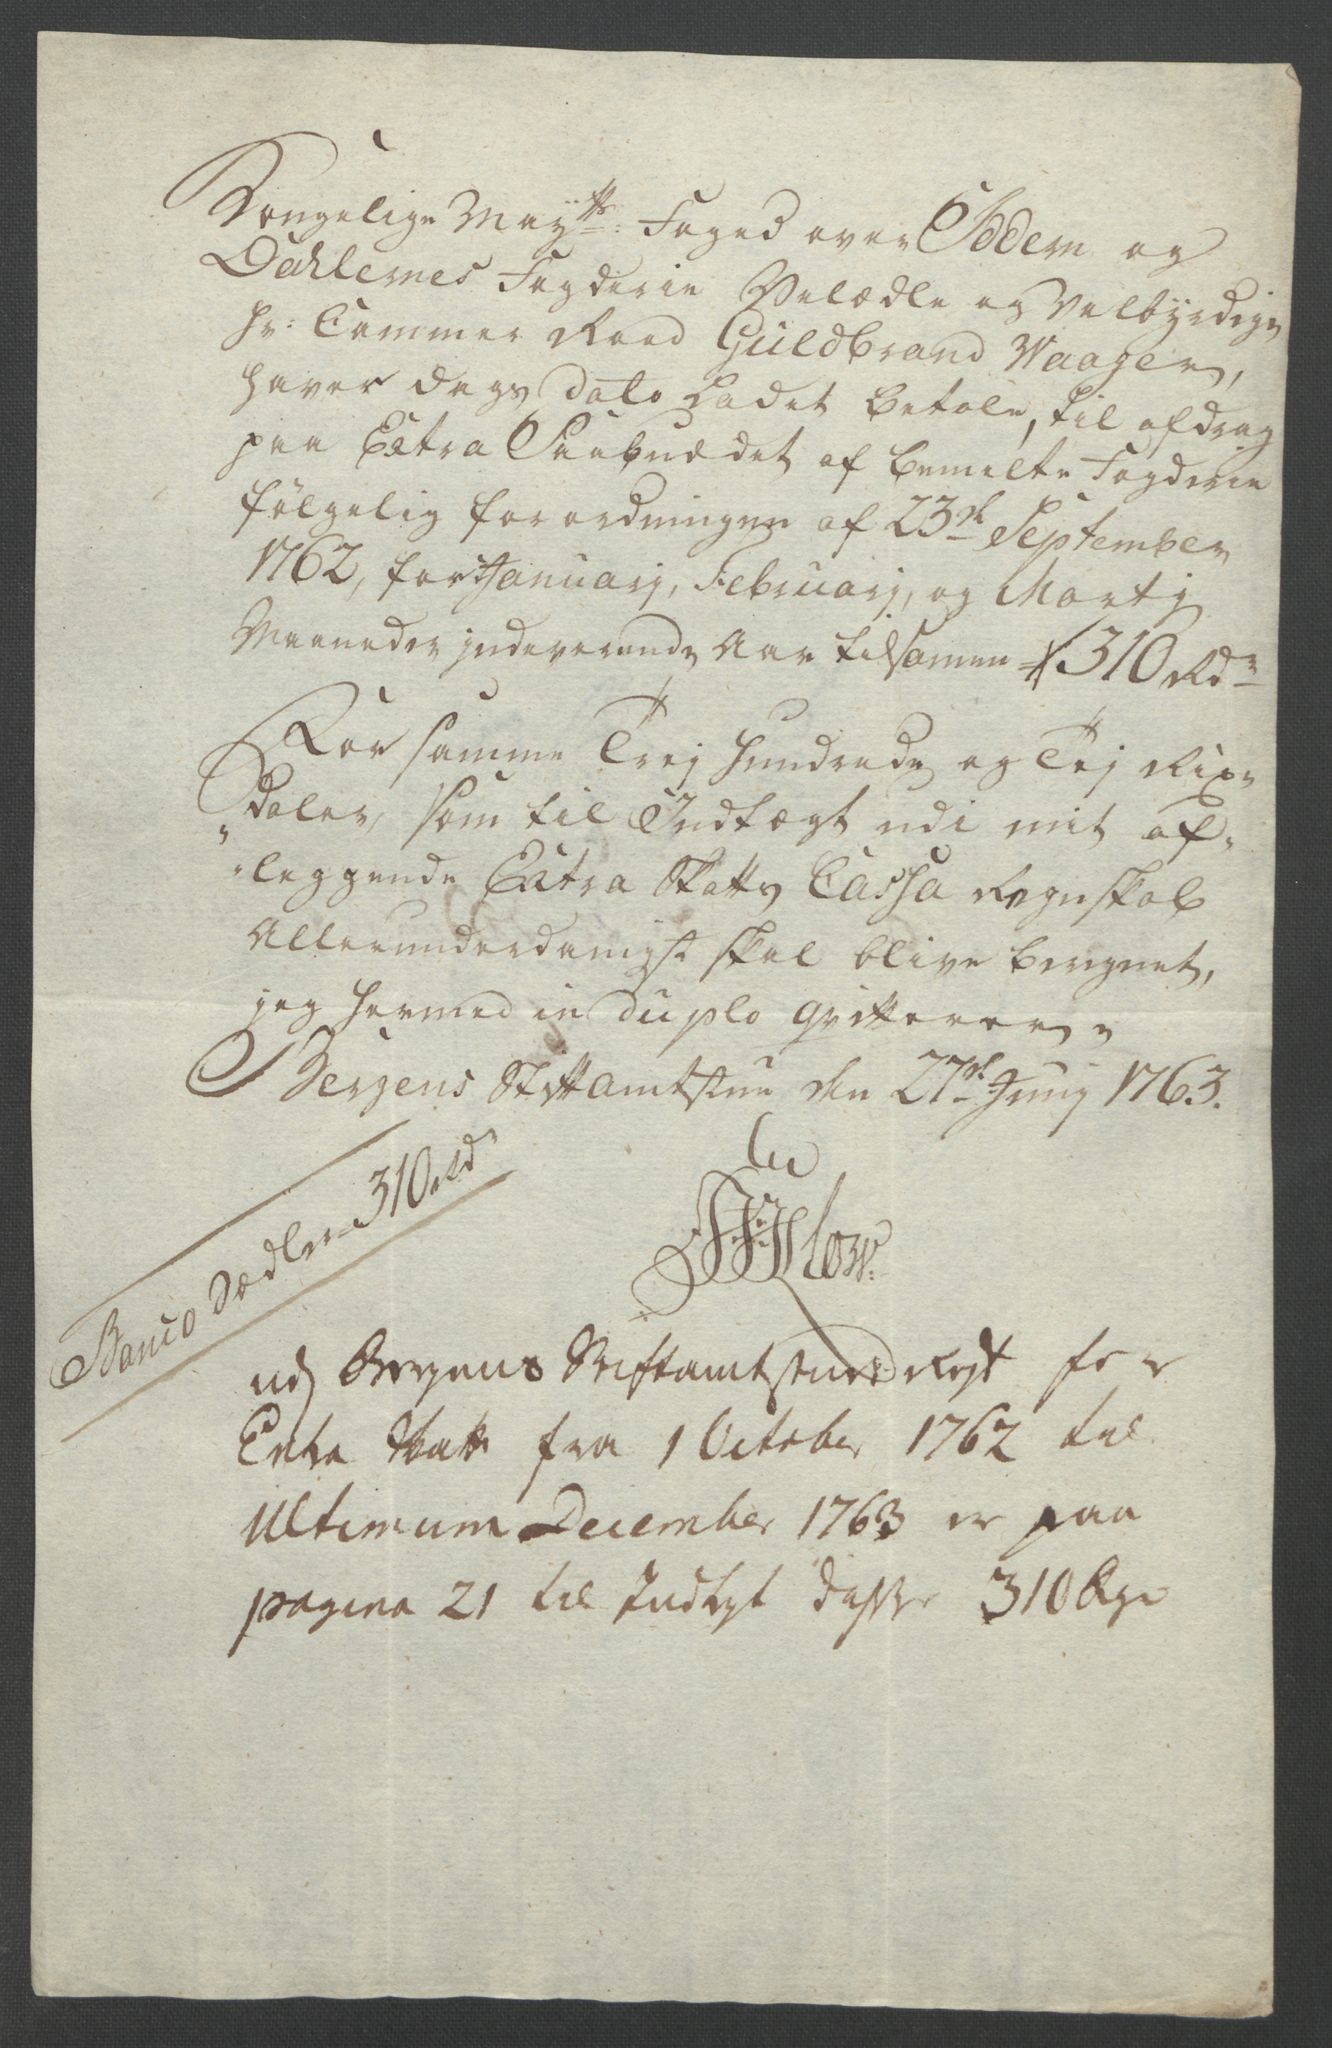 Kongelige May.tts Foged over Jedern og
Dahlernes Fogderie Velædle og Velbyrdige
Hr: Cammer Raad Guldbrand Waager,
haver dags dato ladet betale, til afdrag
paa Extra Paabudet af bemelte Fogderie
følgelig forordningen af 23de September
1762, for Januarj, Februarj, og Martj
Maaneder indeværende Aar tilsamen 310 Rdr
For samme Trej hundrede og Tej Rix-
daler, som til Indtægt udi mit af-
læggende Extra Skatts Cassa Regnskab
Allerunderdanigst skal blive beregnet,
jeg hermed in duplo qvitterer
Bergens Stiftamtstue den 27de Junij 1763.
Banco Sædler 310 rd
udj Bergens Stiftamtstues Regst for
Extra Skatt fra 1 October 1762 til
Ultimum December 1763 er paa
pagina 21 til Indtegt disse 310